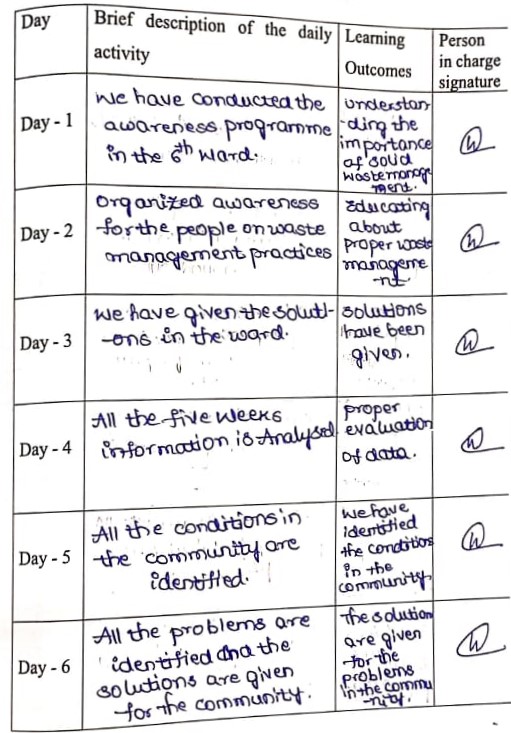 Day
Brief description of the daily
activity
Learning
Outcomes
Person
in charge
signature
Day - 1
We have conducted the
awareness programme
in the 6th Ward.
Understan
-ding the
importance
of solid
waste manag
ement.
Day - 2
Organized awareness
for the people on waste
management practices
Educating
about
proper waste
manageme
-nt
Day - 3
We have given the soluti-
-ons in the ward.
solutions
have been
given.
Day - 4
All the five weeks
information is Analysed.
proper
evaluation
of data.
Day - 5
All the conditions in
the community are
identified.
We have
identified
the condition
in the
community
Day - 6
All the problems are
identified and the
solutions are given
for the community.
The solution
are given
for the
problems
in the commu
-nity.